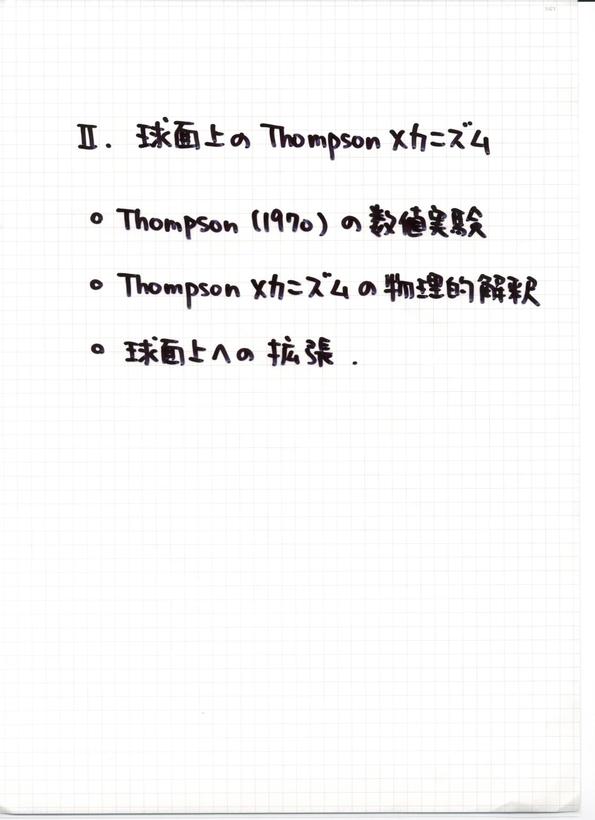 II. 球面上の Thompson メカニズム
○ Thompson (1970) の数値実験
○ Thompson メカニズムの物理的解釈
○ 球面上への拡張.